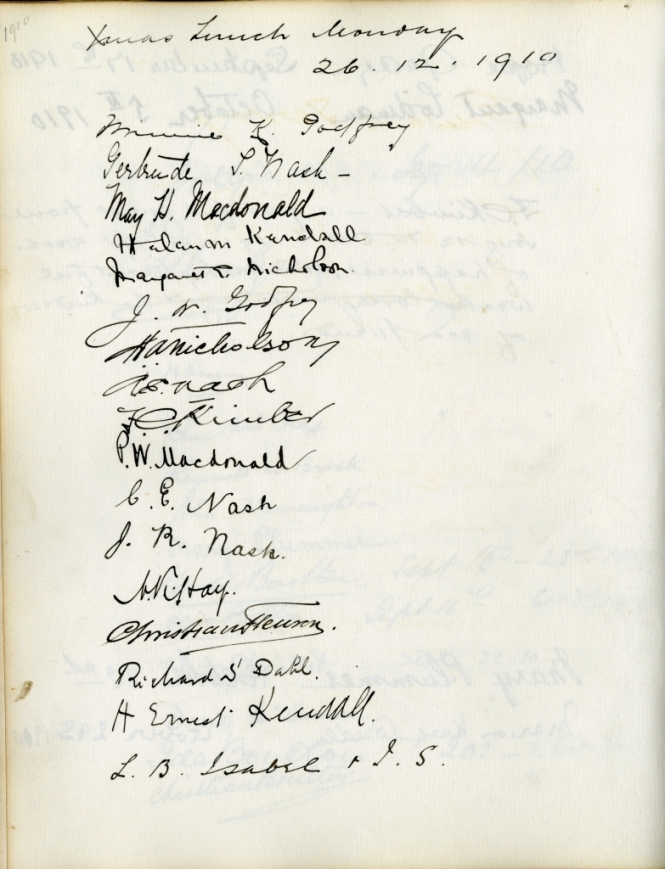 1910
Xmas Lunch Monday
26.12.1910
Minnie K. Godfrey
Gertrude S. Nash -
May H. Macdonald
Kendall
Margaret E. Nicholson
J. W. Godfrey
HANicholson
Nash
F.C. Kimber
P.W. Macdonald
C. E. Nash
J. R. Nash.
Hay.
Christian
Richard S Dahl.
H Ernest Kendall.
L. B. Isabel + I. S.